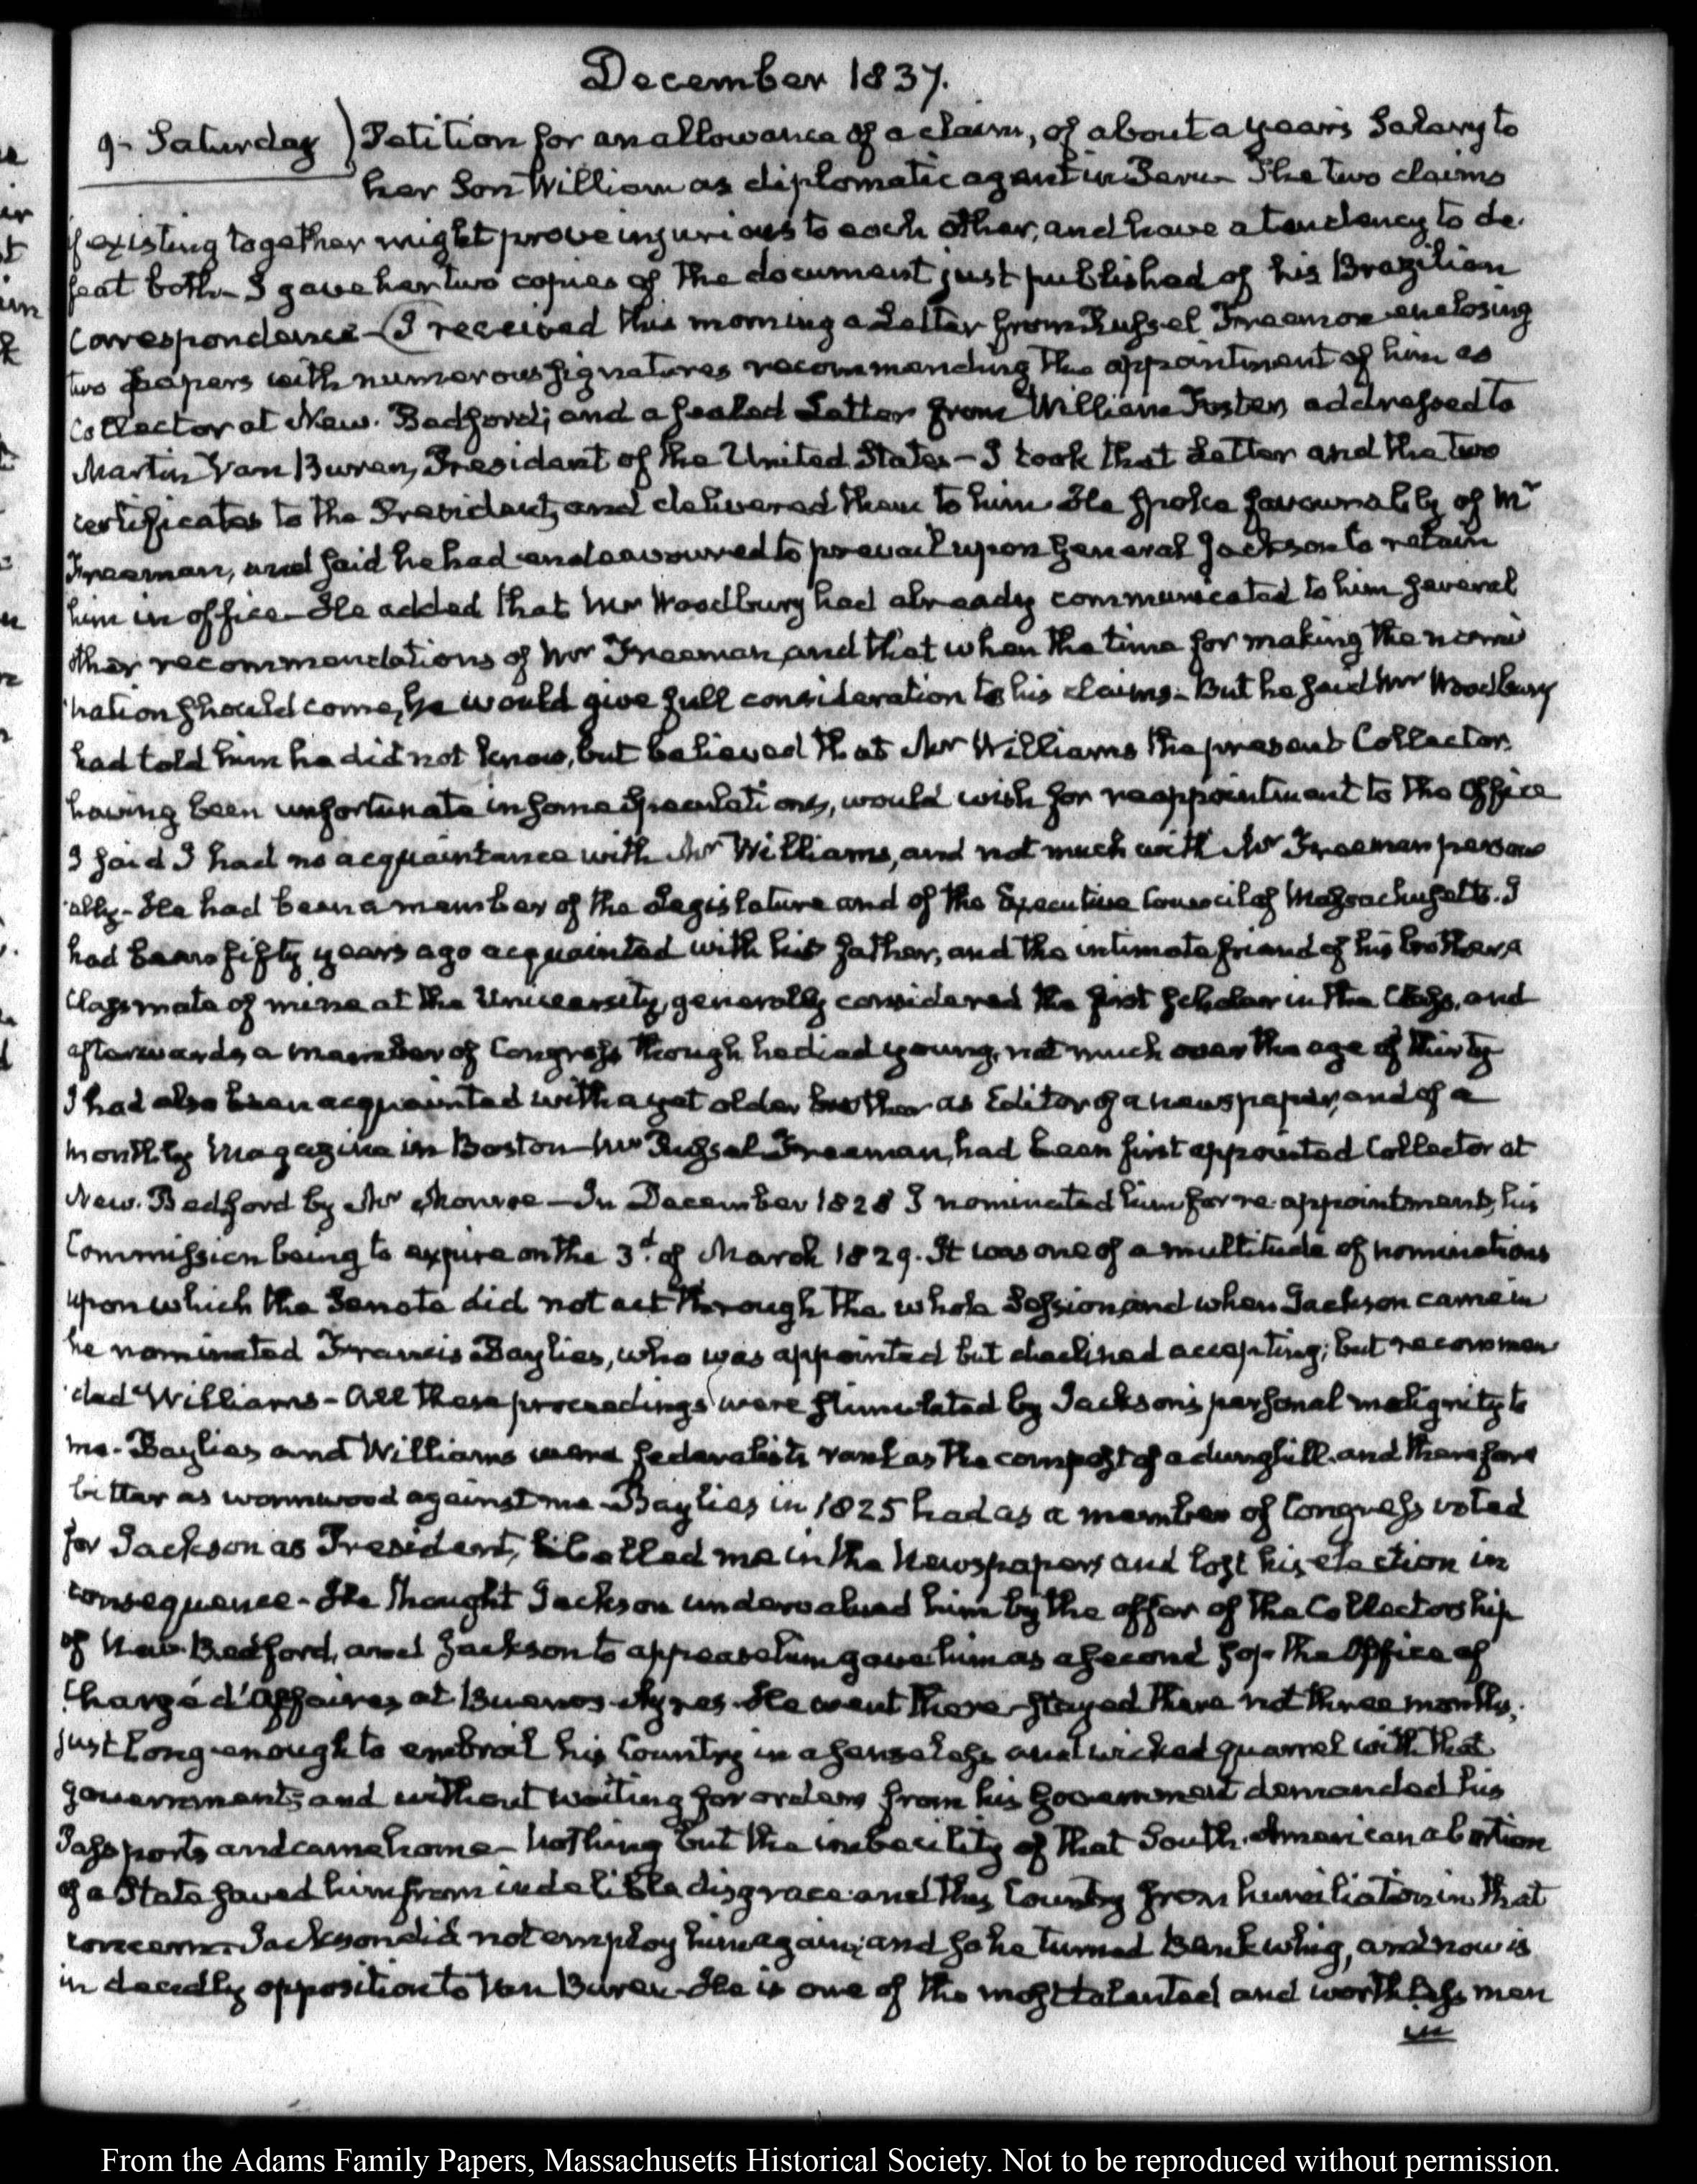 December 1837.
9. Saturday) Petition for an allowance of a claim, of about a years Salary to
her Son William as diplomatic agent in Peru – The two claims
if existing together might prove injurious to each other, and have a tendency to de-
feat both – I gave her two copies of the document just published of his Brazilian
Correspondence – (I received this morning a Letter from Russel Freeman enclosing
two papers with numerous signatures recommending the appointment of him as
Collector at New-Bedford; and a sealed Letter from William Foster, addressed to
Martin Van Buren, President of the United States – I took that Letter and the two
certificates to the President, and delivered them to him He spoke favourably of Mr
Freeman, and said he had endeavoured to prevail upon General Jackson to retain
him in office – He added that Mr Woodbury had already communicated to him several
other recommendations of Mr Freeman, and that when the time for making the nomi
nation should come, he would give full consideration to his claims – But he said Mr Woodbury
had told him he did not know, but believed that Mr Williams the present Collector,
having been unfortunate in some speculations, would wish for reappointment to the Office
I said I had no acquaintance with Mr Williams, and not much with Mr Freeman person
ally – He had been a member of the Legislature and of the Executive Council of Massachusetts. I
had been fifty years ago acquainted with his father, and the intimate friend of his brother, a
Classmate of mine at the University, generally considered the first scholar in the Class, and
afterwards, a member of Congress though he died young, not much over the age of thirty
I had also been acquainted with a yet older brother as Editor of a newspaper, and of a
monthly Magazine in Boston – Mr Russel Freeman, had been first appointed Collector at
New-Bedford by Mr Monroe – In December 1828 I nominated him for re-appointment, his
Commission being to expire on the 3d. of March 1829. It was one of a multitude of nominations
upon which the Senate did not act through the whole Session, and when Jackson came in
he nominated Francis Baylies, who was appointed but declined accepting; but recommen
ded Williams – All these proceedings were stimulated by Jackson's personal malignity to
me – Baylies and Williams were federalists rank as the compost of a dunghill, and therefore
bitter as wormwood against me – Baylies in 1825 had as a member of Congress voted
for Jackson as President, libelled me in the Newspapers and lost his election in
consequence – He thought Jackson undervalued him by the offer of the Collectorship
of New-Bedford, and Jackson to appease him gave him as a second sop the Office of
Chargé d'Affaires at Buenos-Ayres – He went there – stayed there not three months,
just long enough to embroil his Country in a senseless and wicked quarrel with that
government; and without waiting for orders from his Government demanded his
Passports and came home – Nothing but the imbecility of that South-American abortion
of a State saved him from indelible disgrace and this Country from humiliation in that
concern. Jackson did not employ him again, and so he turned Bank whig, and now is
in deadly opposition to Van Buren – He is one of the most talented and worthless men
in
From the Adams Family Papers, Massachusetts Historical Society. Not to be reproduced without permission.